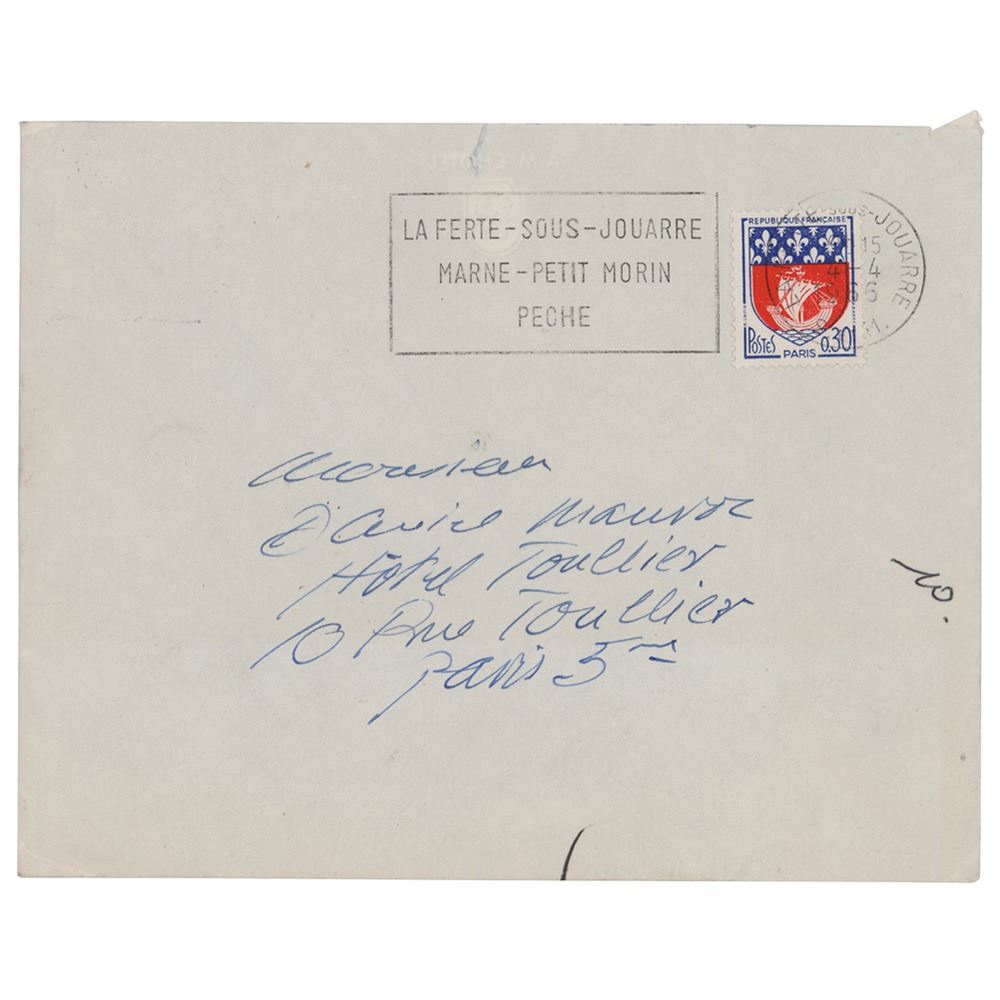 LA FERTE-SOUS-JOUARRE
MARNE-PETIT MORIN
PECHE
SOUS-JOUARRE
15
4-4
66
REPUBLIQUE FRANÇAISE
POSTES
0,30
PARIS
Monsieur
Hôtel Toullier
10 Rue Toullier
Paris 5me
10.